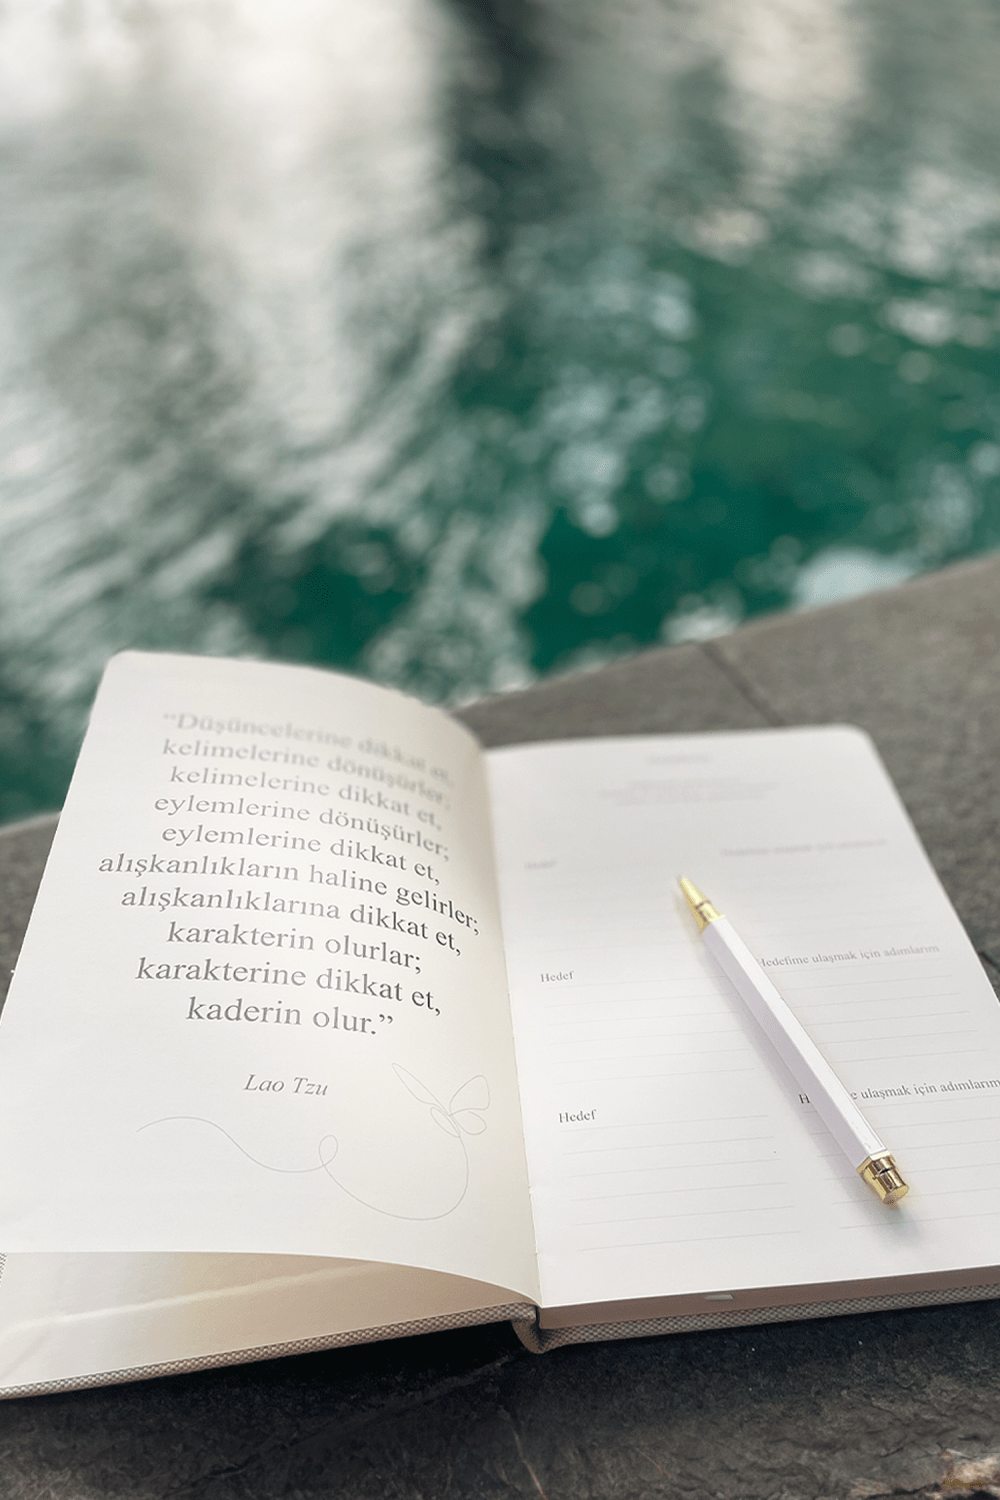 “Düşüncelerine dikkat et,
kelimelerine dönüşürler;
kelimelerine dikkat et,
eylemlerine dönüşürler;
eylemlerine dikkat et,
alışkanlıkların haline gelirler;
alışkanlıklarına dikkat et,
karakterin olurlar;
karakterine dikkat et,
kaderin olur.”
Lao Tzu
Hedef
Hedefime ulaşmak için adımlarım
Hedef
Hedefime ulaşmak için adımlarım
Hedef
ulaşmak için adımlarım